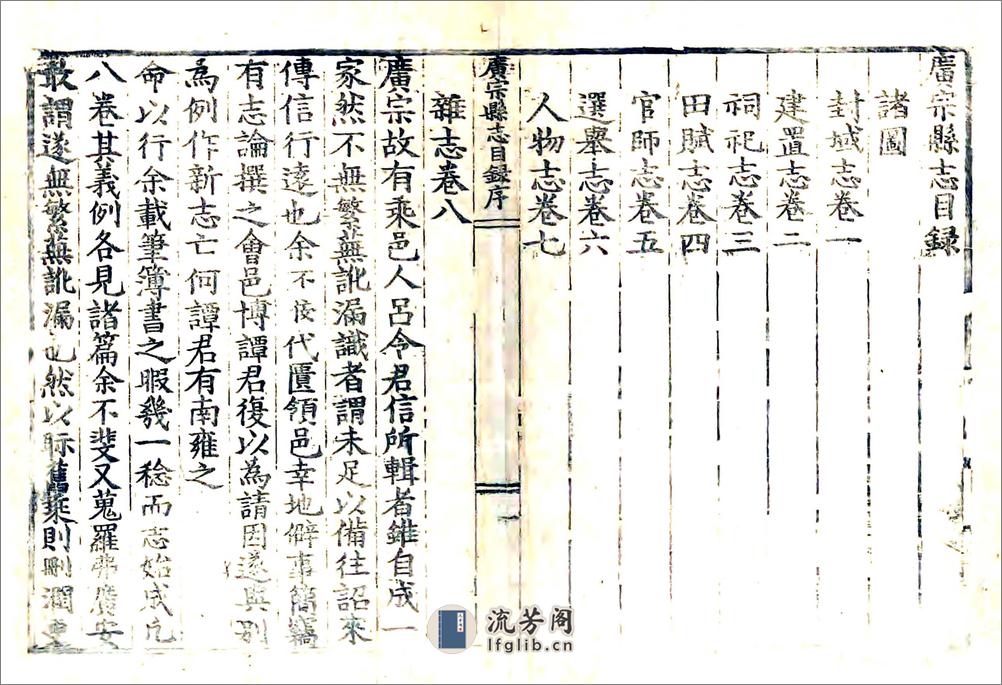 廣宗縣志目録
諸圖
封域志卷一
建置志卷二
祠祀志卷三
田賦志卷四
官師志卷五
選舉志卷六
人物志卷七
廣宗縣志目録序
雜志卷八
廣宗故有乘邑人呂令君信所輯者雖自成一
家然不無繁蕪訛漏識者謂未足以備往詔來
傳信行遠也余不佞代匱領邑幸地僻事簡竊
有志論撰之會邑博譚君復以為請因遂與別
為例作新志亡何譚君有南雍之
命以行余載筆簿書之暇幾一稔而志始成凡
八卷其義例各見諸篇余不斐又蒐羅弗廣安
敢謂遂無繁蕪訛漏也然以眎舊乘則刪潤
流芳阁
lfglib.cn